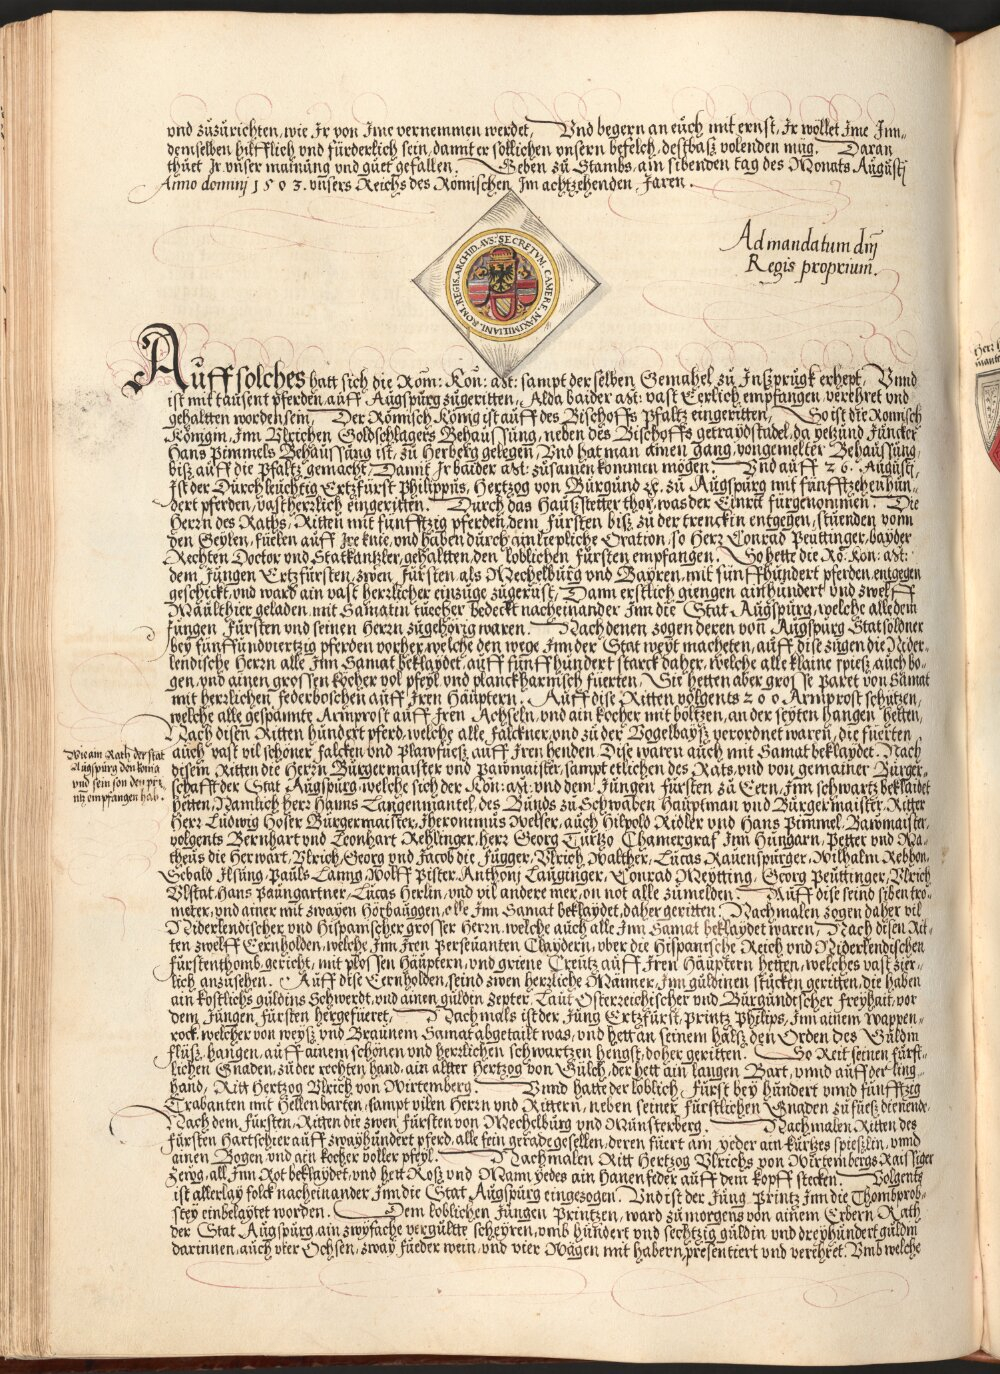 vnd zůzůrichten, wie Jr von Jme vernemmen werdet, Vnd begern an eůch mit ernst, Jr wöllet Jme Jnn„
demselben hilfflich vnd fürderlich sein, damit er sollichen vnsern befelch, destbaß volenden müg. Daran
thůet Jr vnser mainůng vnd gůet gefallen. Geben zů Stambs, am sibenden tag des Monats Aůgustj
Anno dominj 1503. vnsers Reichs des Römischen Jm achtzehenden Jaren.
SECRETVM. CAMERE. MAXIMILIANI. ROM. REGIS. ARCHID. AVS:
Ad mandatum dnj
Regis proprium.
Aůff solches hatt sich die Röm: Kön: aͤt: sampt derselben Gemahel zů Jnßprůgk erhept, Vnnd
ist mit taůsent pferden aůff Aůgspůrg zůgeritten, Alda baider aͤt: vast Eerlich empfangen, verehret vnd
gehaltten worden sein, Der Römisch König ist aůff des Bischoffs Pfaltz eingeritten, So ist die Römisch
Königin, Jnn Vlrichen Goldschlagers Behaůssůng, neben des Bischoffs getraydstadel, da yetzůnd Jůncker
Hans Pimmels Behaůssůng ist, zů Herberg gelegen, Vnd hat man ainen gang, von gemelter Behaůssůng,
biß aůff die Pfaltz gemacht, Damit Jr baider aͤt: zůsamen kommen mögen. Vnd aůff 26. Aůgůstj,
Jst der Důrchleůchtig Ertzfürst Philippůs, Hertzog von Bůrgůnd ꝛc. zů Aůgspůrg mit fůnfftzehenhůn„
dert pferden, vast herrlich eingeritten. Důrch das Haůstetter thor, was der Einrit fürgenommen. Die
Herrn des Raths, Ritten mit fůnfftzig pferden, dem Fürsten biß zů der trenckin entgegen, stůenden vonn
den Geylen, fielen aůff Jre knie, vnd haben důrch ain liepliche Oration, so Herr Conrad Peüttinger, bayder
Rechten Doctor vnd Statkantzler, gehaltten, den loblichen Fürsten empfangen. So hette die Rö: Kön: aͤt:
dem Jůngen Ertzfürsten, zwen Fürsten, als Mechelbůrg vnd Bayren, mit fůnffhůndert pferden, entgegen
geschickt, vnd ward ain vast herrlicher einzůge zůgerůst, Dann erstlich giengen ainhůndert vnd zwelff
Maůlthier geladen, mit Samatin tüecher bedeckt nacheinander Jnn die Stat Aůgspůrg, welche alle dem
Jůngen Fürsten vnd seinen Herrn zůgehörig waren. Nach denen zogen deren von Aůgspůrg Statsoldner
bey fünffůndviertzig pferden vorher, welche den wege Jnn der Stat weyt macheten, aůff dise zůgen die Nider„
lendische Herrn alle Jnn Samat beklaydet, aůff fünffhůndert starck daher, welche alle klaine spieß, aůch bo„
gen, vnd ainen grossen kocher vol pfeyl vnd planckharnisch fůerten, Sie hetten aber grosse Paret von Samat
mit herrlichen federboschen aůff Jren Häůptern. Aůff dise Ritten volgents 200 Armprost schůtzen,
welche alle gespannte Armprost aůff Jren Achseln, vnd ain kocher mit boltzen, an der seyten hangen hetten,
Nach disen Ritten hůndert pferd, welche alle Falckner, vnd zů der Vogelbayß verordnet waren, die fůerten
aůch vast vil schöner falcken vnd Plawfüeß aůff Jren henden. Dise waren aůch mit Samat beklaydet. Nach
disem Ritten die Herrn Bůrgermaister vnd Pawmaister, sampt etlichen des Rats, vnd von gemainer Bůrger„
schafft der Stat Aůgspůrg, welche sich der Kön: aͤt: vnd dem Jůngen fürsten zů Eern, Jnn schwartz beklaidet
hetten, Namlich herr Hanns Langenmantel, des Bůnds zů Schwaben Haůptman vnd Bůrgermaister, Ritter
Herr Lůdwig Hoser Bůrgermaister, Jheronimůs Welser, aůch Hilpold Ridler vnd Hans Pimmel, Bawmaister,
volgents Bernhart vnd Leonhart Rehlinger, herr Georg Tůrtzo Chamergraf Jnn Hůngarn, Petter vnd Ma„
theůs die Herwart, Vlrich, Georg vnd Jacob die Fůgger, Vlrich Walther, Lůcas Raůenspůrger, Wilhalm Rehbon,
Sebald Jlsůng, Paůls Lanng, Wolff Pister, Anthonj Laůginger, Conrad Meytting, Georg Peüttinger, Vlrich
Vlstat, Hans Paůngartner, Lůcas Herlin, vnd vil andere mer, on not alle zůmelden. Aůff dise seind siben tro„
meter, vnd ainer mit zwayen Hörbaůggen, alle Jnn Samat beklaydet, daher geritten. Nachmalen zogen daher vil
Niderlendischer vnd Hispanischer grosser Herrn, welche aůch alle Jnn Samat beklaydet waren, Nach disen Rit„
ten zwelff Eernholden, welche Jnn Jren Perseůanten Claydern, vber die Hispanische Reich vnd Niderlendischen
Fürstenthomb, gericht, mit plossen Häůptern, vnd griene Creůtz aůff Jren Häůptern hetten, welches vast zier„
lich anzůsehen. Aůff dise Eernholden, seind zwen herrliche Männer, Jnn güldinen stücken geritten, die haben
ain kostlichs güldins Schwerdt, vnd ainen gülden Zepter, Laůt Osterreichischer vnd Bůrgůndischer freyhait, vor
dem Jůngen Fürsten hergefüeret, Nachmals ist der Jůng Ertzfürst, Printz Philips, Jnn ainem wappen„
rock, welcher von weyß vnd Braůnem Samat abgetailt was, vnd hett an seinem halß den Orden des Güldin
Flüß, hangen, aůff ainem schönen vnd herrlichen schwartzen hengst, doher geritten. So Reit seinen fürst„
lichen Gnaden, zů der rechten hand, ain altter Hertzog von Gůlch, der hett ain langen Bart, vnnd aůff der ling„
hand, Ritt Hertzog Vlrich von Wirtemberg. Vnnd hatte der loblich Fürst bey hůndert vnnd fůnfftzig
Trabanten mit Hellenbarten, sampt vilen Herrn vnd Rittern, neben seiner fürstlichen Gnaden zů füeß dienende.
Nach dem Fürsten, Ritten die zwen Fürsten von Mechelbůrg vnd Münsterberg. Nachmalen Ritten des
Fürsten Hartschier aůff zwayhůndert pferd, alle fein gerade gesellen, deren füert ain yeder ain kůrtzes spießlin, vnnd
ainen Bogen vnd ain kocher voller pfeyl. Nachmalen Ritt Hertzog Vlrichs von Wirtembergs Raissiger
Zeüg, all Jnn Rot beklaydet, vnd hett Roß vnd Mann yedes ain Hanenfeder aůff dem kopff stecken. Volgents
ist allerlay folck nacheinander Jnn die Stat Aůgspůrg eingezogen. Vnd ist der Jůng Printz Jnn die Thombprob„
stey einbelaytet worden. Dem loblichen Jůngen Printzen, ward zůmorgens von ainem Erbern Rath
der Stat Aůgspůrg, ain zwyfache vergůltte scheyren, vmb hůndert vnd sechtzig güldin vnd dreyhůndert güldin
darinnen, aůch vier Ochsen, zway füeder wein, vnd vier Wägen mit habern, presentiert vnd verehret. Vmb welche
Wie ain Rath der stat
Augspurg den konig
vnd sein son den pri„
ntz empfangen hab.